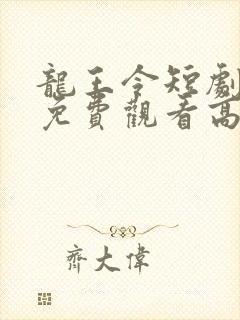 龍王令短劇
免費觀看高
齊大偉